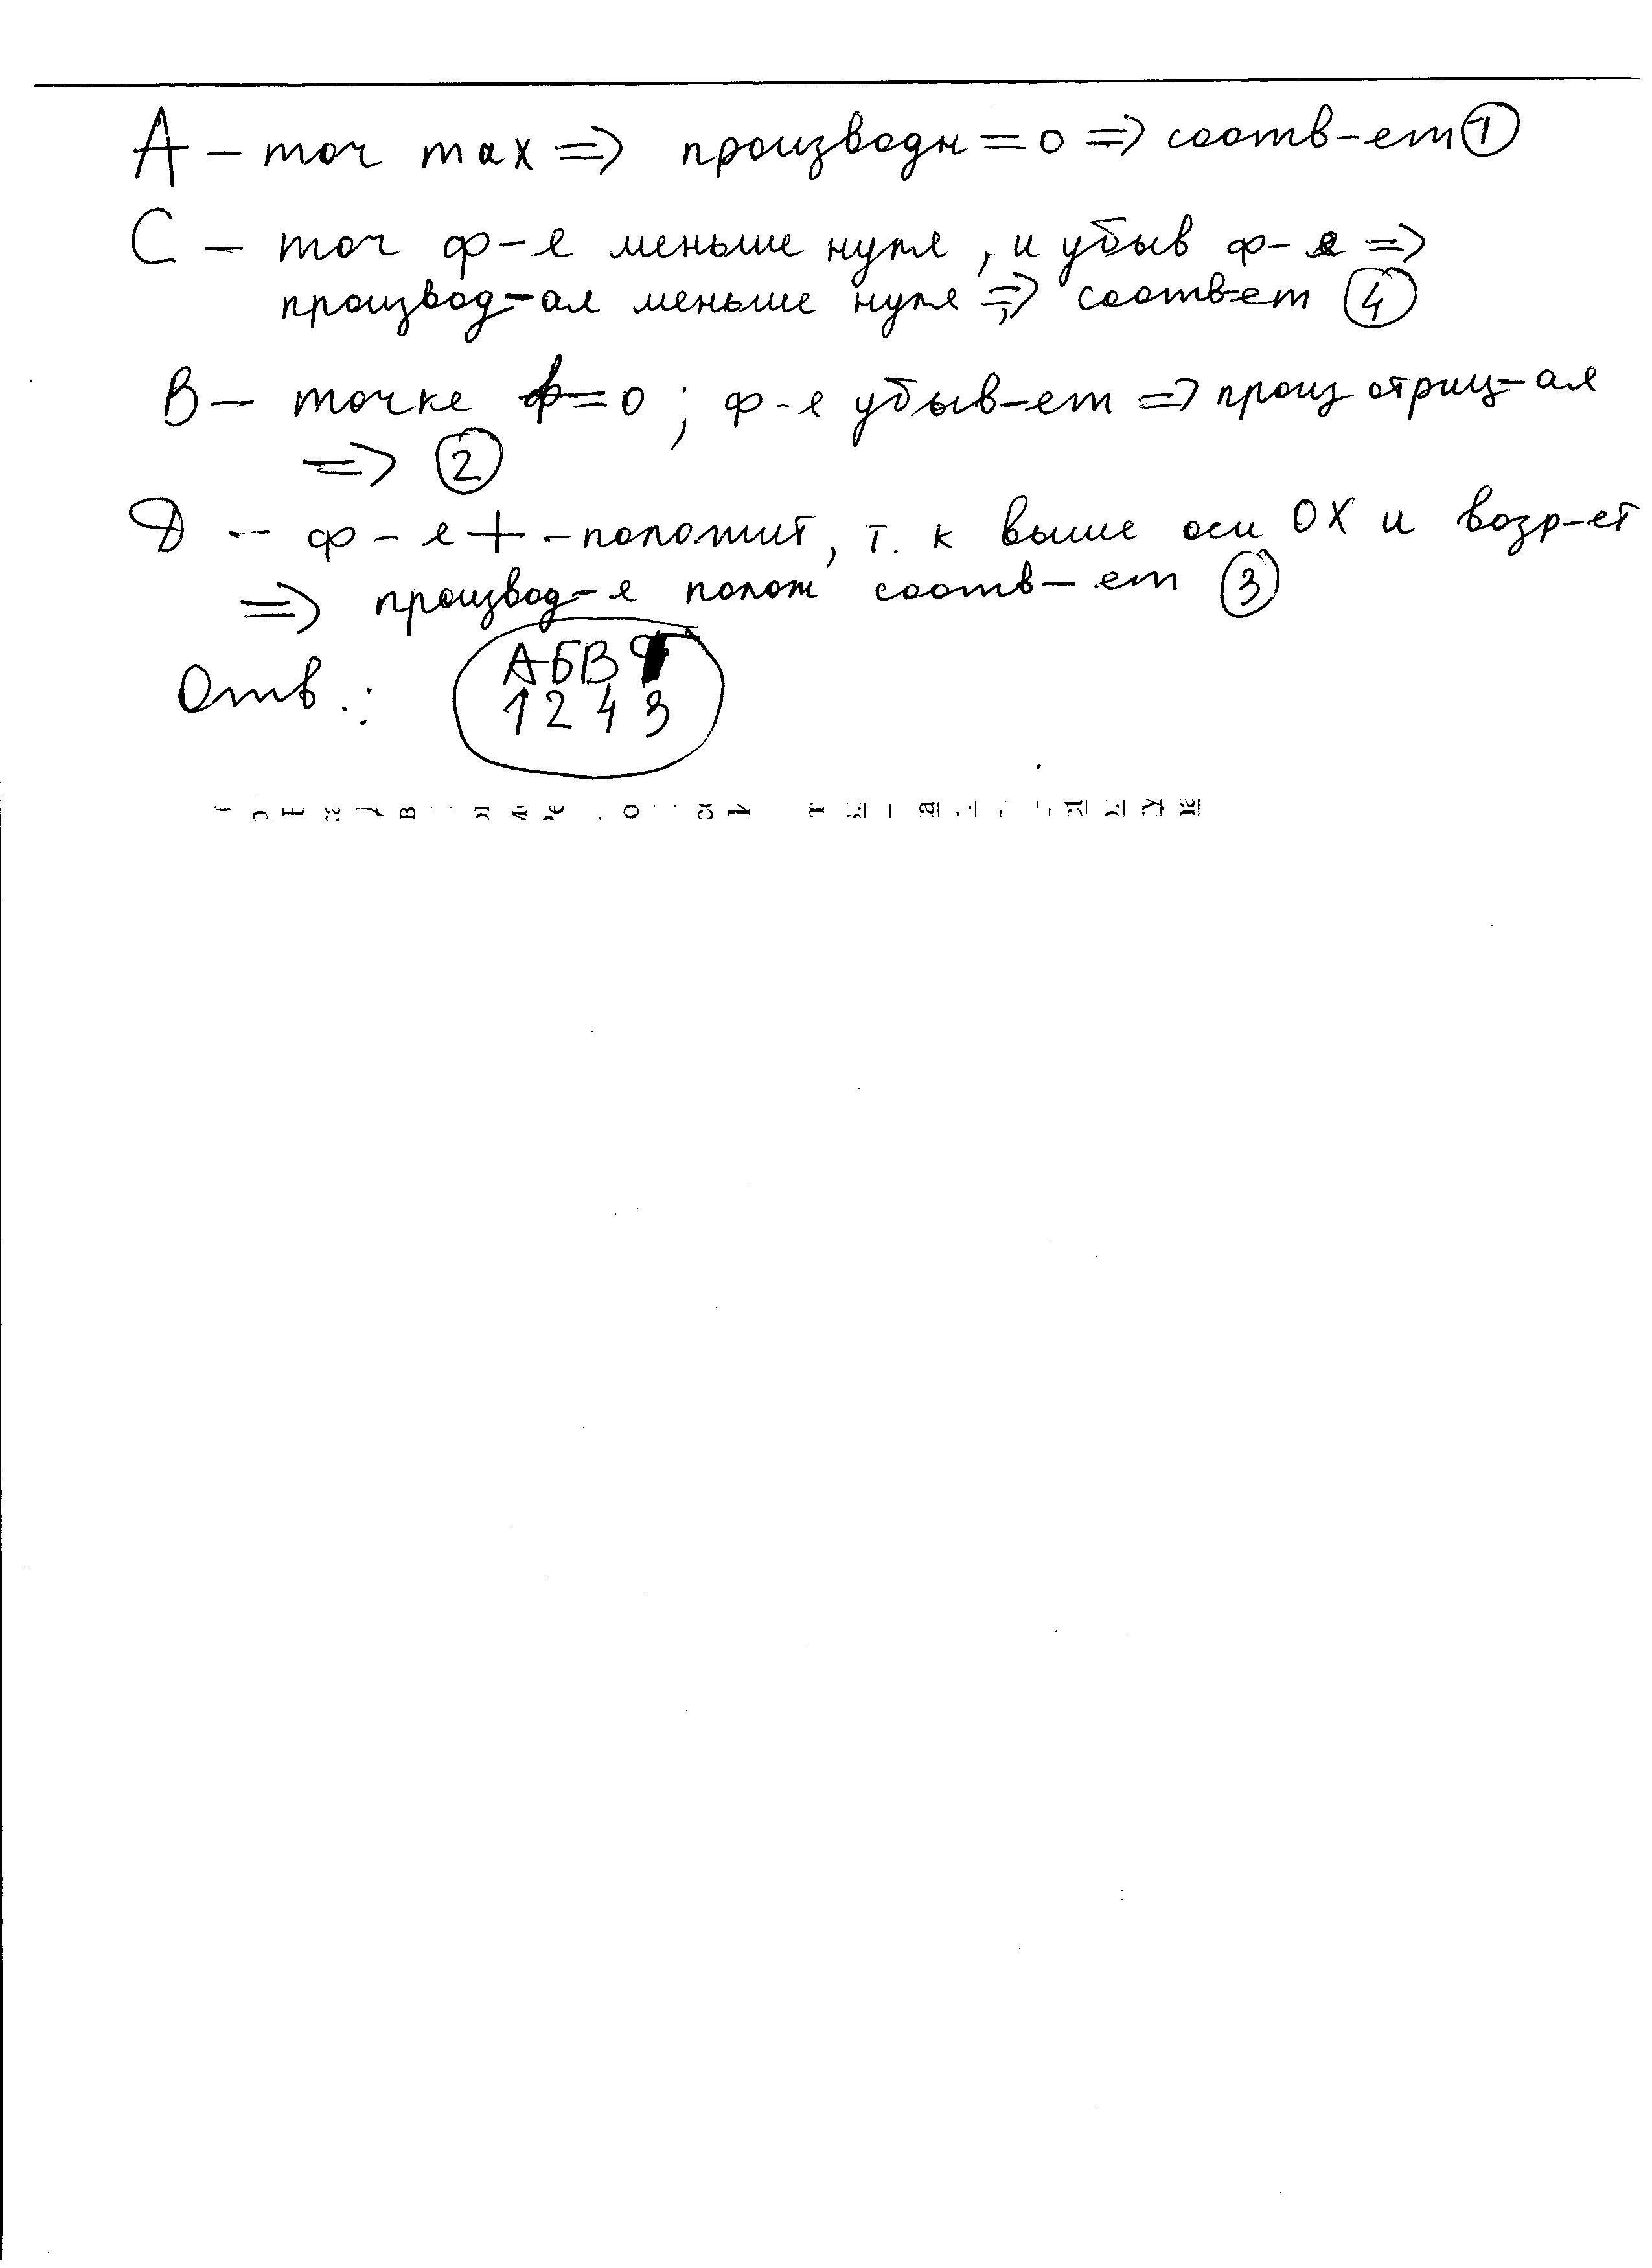 А – точ max => производн = 0 => соотв-ет ①
С – точ ф-я меньше нуля, и убыв ф-я =>
производ-ая меньше нуля => соотв-ет ④
В – точке ф=0; ф-я убыв-ет => произ отриц-ая
=> ②
Д -- ф-я + - положит, т. к выше оси ОХ и возр-ет
=> производ-я полож соотв-ет ③
АБВ
Отв.:
1 2 4 3